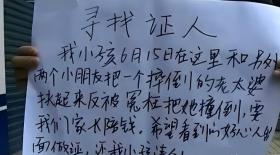 寻找证人
我小孩6月15日在这里和另外
两个小朋友把一个摔倒的老太婆
扶起来反被冤枉把她撞倒，要
我们家长赔钱，希望看到的好心人出
面做证，还我小孩清白